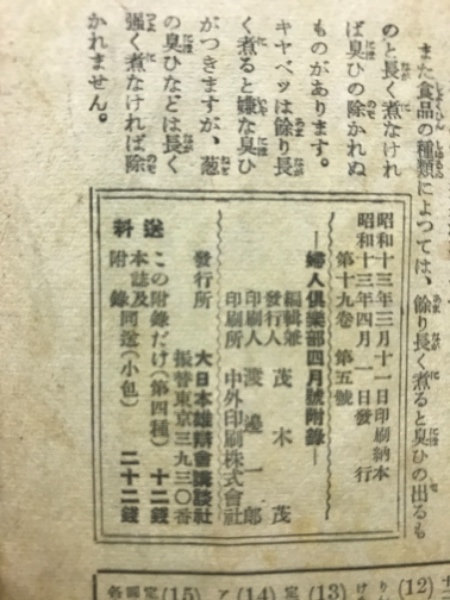 また食品の種類によつては、餘り長く煮ると臭ひの出るも
のと長く煮なけれ
ば臭ひの除かれぬ
ものがあります。
キヤベツは餘り長
く煮ると嫌な臭ひ
がつきますが、葱
の臭ひなどは長く
強く煮なければ除
かれません。
昭和十三年三月十一日印刷納本
昭和十三年四月一日發行
第十九卷 第五號
―婦人俱樂部四月號附錄―
編輯兼
發行人 茂木茂
印刷人 渡邊一郎
印刷所 中外印刷株式會社
發行所 大日本雄辯會講談社
振替東京三九三〇番
送料
この附錄だけ(第四種) 十二錢
本誌及
附錄 同送(小包) 二十二錢
(12)
(13)
定
(14)
(15)